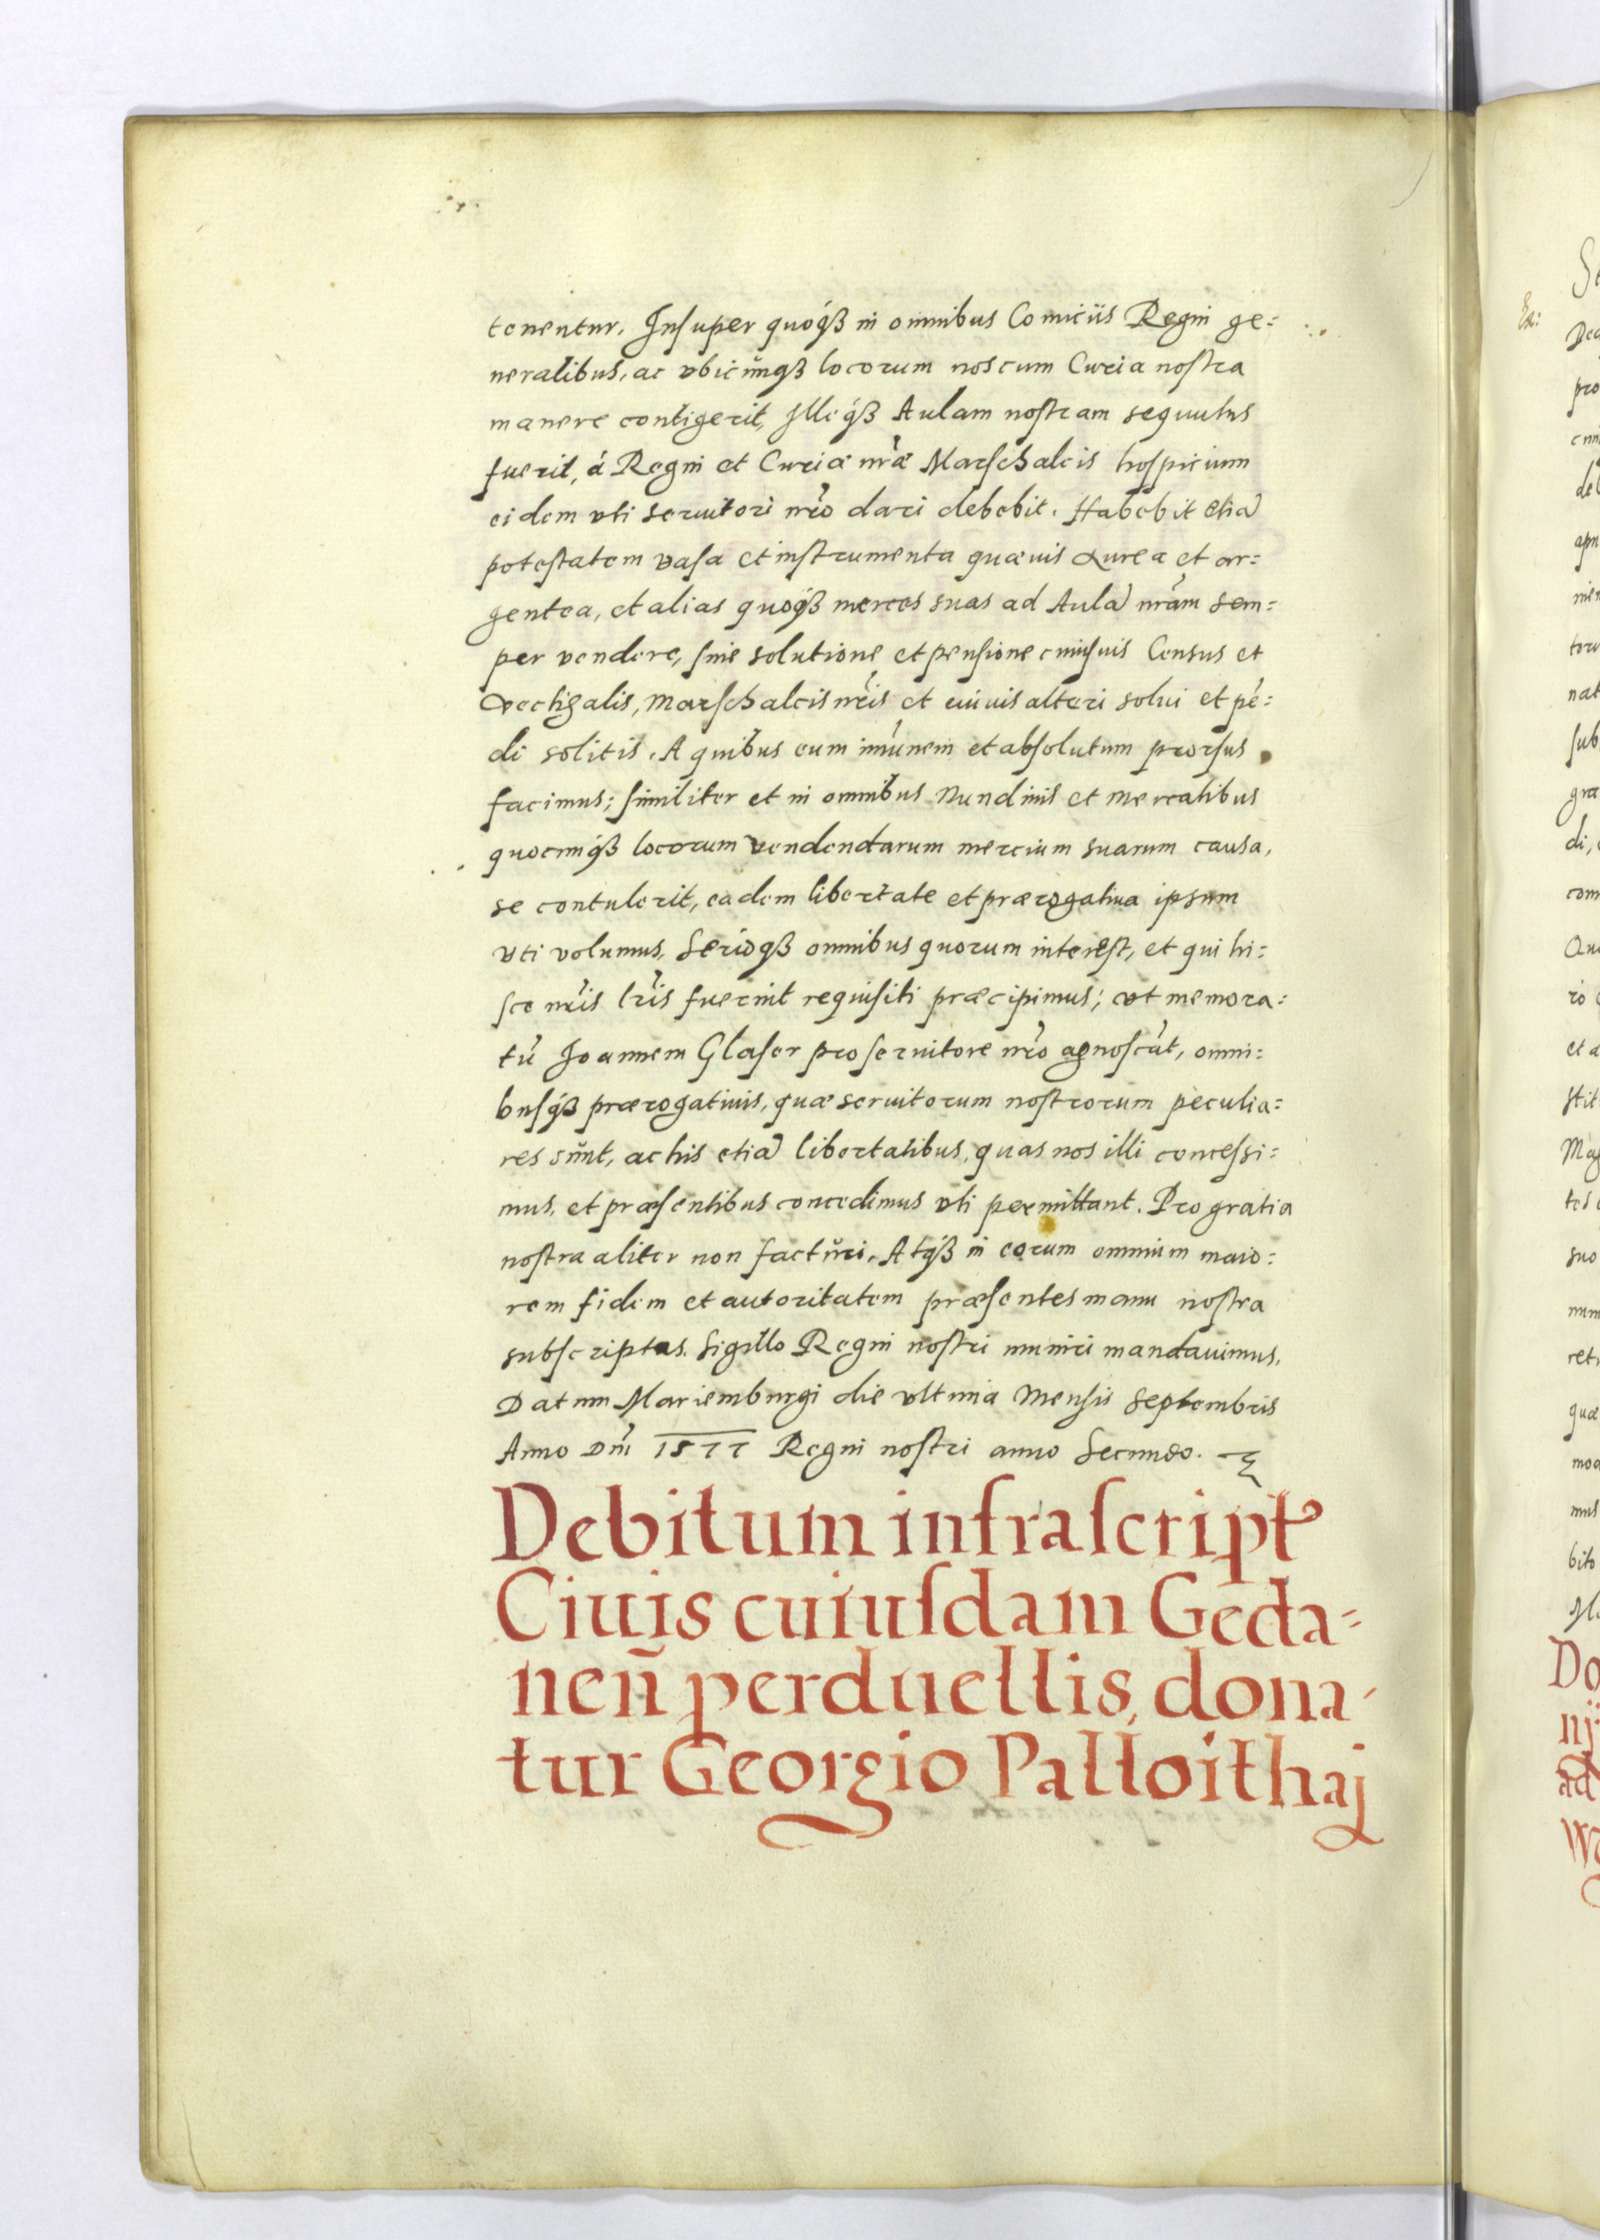 tenentur. Insuper quoqȝ in omnibus Comitiis Regni ge=
neralibus, ac vbicūnqȝ locorum nos cum Curia nostra
manere contigerit, Illeqȝ Aulam nostram sequutus
fuerit, á Regni et Curiæ nr̄æ Marschalcis hospitium
eidem vti seruitori nr̄o dari debebit. Habebit etiā
potestatem vasa et instrumenta quæuis aurea et ar=
gentea, et alias quoqȝ merces suas ad Aulā nr̄am sem=
per vendere, sine solutione et pensione cuiusuis Census et
Vectigalis, Marschalcis nr̄is et cuiuis alteri solui et pē=
di solitis. A quibus eum imūnem et absolutum prorsus
facimus; similiter et in omnibus Nundinis et Mercatibus
quocunqȝ locorum vendendarum mercium suarum causa,
se contulerit, eadem libertate et prærogatiua ipsum
vti volumus, Serioqȝ omnibus quorum interest, et qui hi=
sce nr̄is lr̄is fuerint requisiti præcipimus; vt memora=
tū Joannem Glaser pro seruitore nr̄o agnoscāt, omni=
busqȝ prærogatiuis, quæ seruitorum nostrorum peculia=
res sūnt, ac his etiā libertatibus, quas nos illi concessi=
mus, et præsentibus concedimus vti permittant. Pro gratia
nostra aliter non factūri. Atqȝ in eorum omnium maio=
rem fidem et autoritatem præsentes manu nostra
subscriptas. Sigillo Regni nostri muniri mandauimus.
Datum Mariemburgi die vltima Mensis Septembris
Anno Dnī 1577 Regni nostri anno Secundo.
Debitum infrascript
Ciuis cuiusdam Geda=
neñ perduellis, dona-
tur Georgio Palloithaj